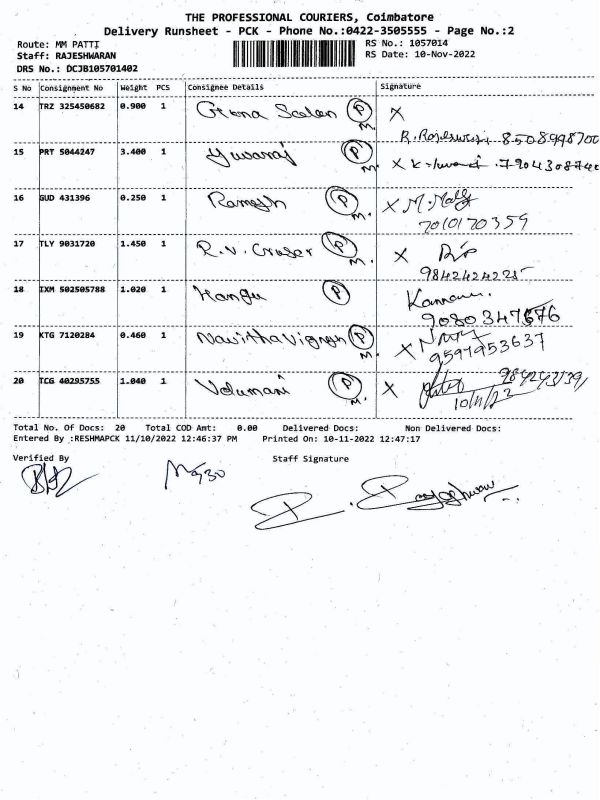 THE PROFESSIONAL COURIERS, Coimbatore
Delivery Runsheet - PCK - Phone No.:0422-3505555 - Page No.:2
Route: MM PATTI RS No.: 1057014
Staff: RAJESHWARAN RS Date: 10-Nov-2022
DRS No.: DCJB105701402
S No Consignment No Weight PCS Consignee Details Signature
14 TRZ 325450682 0.900 1 P X
M. 8508998700
15 PRT 5044247 3.400 1 Yuvaraj P X
M.
16 GUD 431396 0.250 1 Ramesh P X M.
M. 7010170359
17 TLY 9031720 1.450 1 R.V. P X
M. 9842424225
18 IXM 502505788 1.020 1 P
19 KTG 7120284 0.460 1 P X
M. 9597953637
20 TCG 40295755 1.040 1 Velumani P X
M. 10/11/22
Total No. Of Docs: 20 Total COD Amt: 0.00 Delivered Docs: Non Delivered Docs:
Entered By :RESHMAPCK 11/10/2022 12:46:37 PM Printed On: 10-11-2022 12:47:17
Verified By Staff Signature